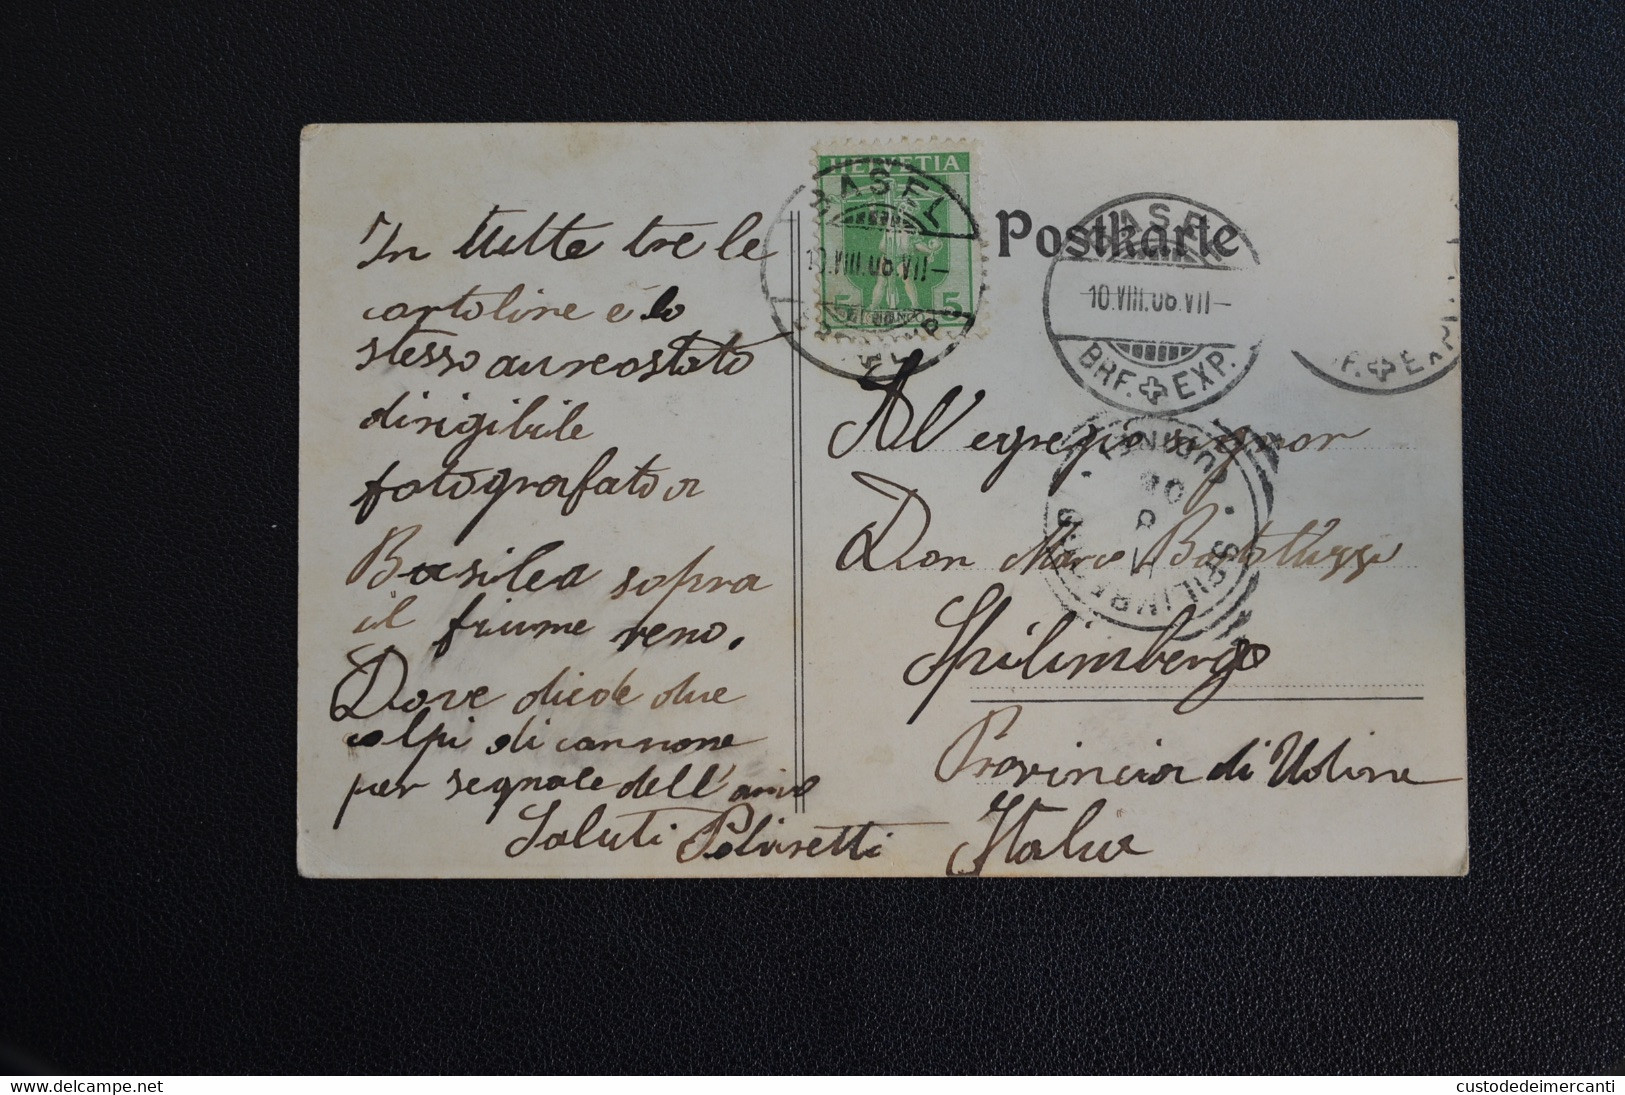 In tutte tre le
cartoline è lo
stesso aureostato
dirigibile
fotografato a
Basilea sopra
il fiume reno.
Dove diede due
colpi di cannone
per segnale dell'
Saluti
HELVETIA
5 5
BASEL
10.VIII.08.VII-
Postkarte
BASEL
10.VIII.08.VII-
BRF. EXP.
F. EXP.
Al' egregio signor
Don Marco Bortoluzzi
Spilimbergo
Provincia di Udine
Italia
SPILIMBERGO
(UDINE)
08
delcampe.net
custodedeimercanti